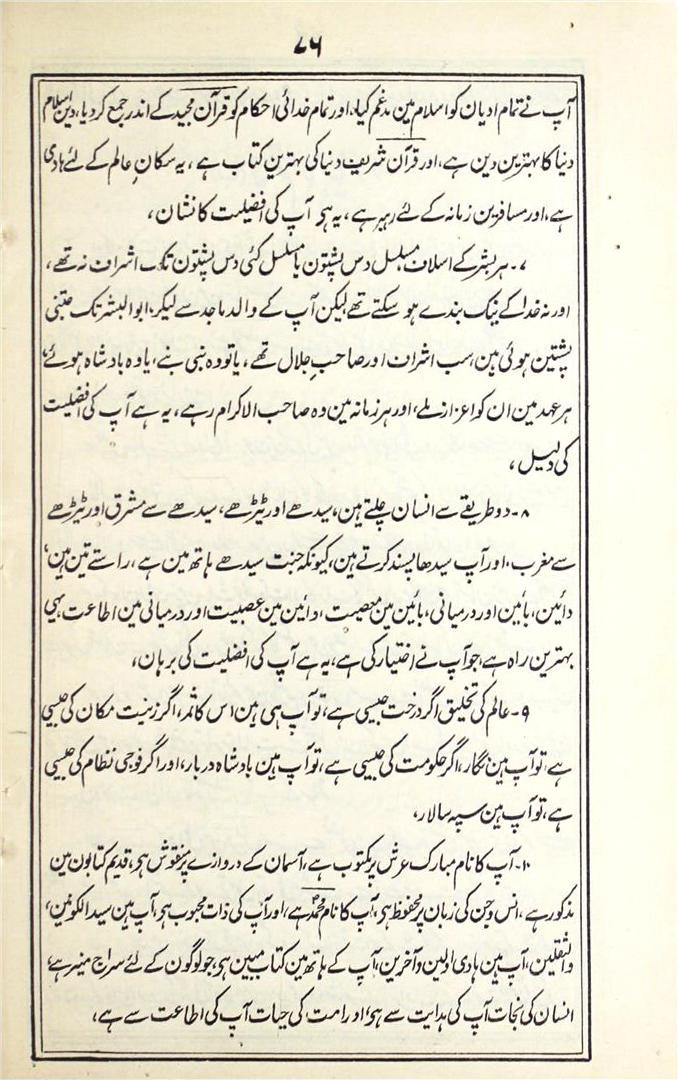 ۷۶
آپ نے تمام ادیان کو اسلام مین مدغم کیا، اور تمام خدائی احکام کو قرآن مجید کے اندر جمع کر دیا، دین اسلام
دنیا کا بہترین دین ہے، اور قرآن شریف دنیا کی بہترین کتاب ہے، یہ سکان عالم کے لئے ہادی
ہے، اور مسافرین زمانہ کے لئے رہبر ہے، یہ ہی آپ کی افضلیت کا نشان،
۷۔ ہر بشر کے اسلاف مسلسل دس پشتون یا مسلسل کئی دس پشتون تک اشراف نہ تھے،
اور نہ خدا کے نیک بندے ہو سکتے تھے لیکن آپ کے والد ماجد سے لیکر ابوالبشر تک جتنی
پشتین ہوئی ہین، سب اشراف اور صاحبِ جلال تھے، یا تو وہ نبی بنے، یا وہ بادشاہ ہوئے،
ہر عہد مین ان کو اعزاز ملے، اور ہر زمانہ مین وہ صاحب الاکرام رہے، یہ ہے آپ کی افضلیت
کی دلیل،
۸۔ دو طریقے سے انسان چلتے ہین، سیدھے اور ٹیڑھے، سیدھے سے مشرق اور ٹیڑھے
سے مغرب، اور آپ سیدھا پسند کرتے ہین، کیونکہ جنت سیدھے ہاتھ مین ہے، راستے تین ہین،
دائین، بائین اور درمیانی، بائین مین معصیت، دائین مین عصبیت اور درمیانی مین اطاعت یہی
بہترین راہ ہے، جو آپ نے اختیار کی ہے، یہ ہے آپ کی افضلیت کی برہان،
۹۔ عالم کی تخلیق اگر درخت جیسی ہے، تو آپ ہی ہین اس کا ثمر، اگر زینت مکان کی جیسی
ہے، تو آپ ہین نگار، اگر حکومت کی جیسی ہے، تو آپ ہین بادشاہ دربار، اور اگر فوجی نظام کی جیسی
ہے، تو آپ ہین سپہ سالار،
۱۰۔ آپ کا نام مبارک عرش پر مکتوب ہے، آسمان کے دروازے پر منقوش ہی، قدیم کتابون مین
مذکور ہے، انس و جن کی زبان پر محفوظ ہی، آپ کا نام محمدؐ ہے، اور آپ کی ذات محبوب ہی، آپ ہین سید الکونین،
والثقلین، آپ ہین ہادی اولین و آخرین، آپ کے ہاتھ مین کتاب مبین ہی جو لوگون کے لئے سراج منیر ہے،
انسان کی نجات آپ کی ہدایت سے ہی، اور امت کی حیات آپ کی اطاعت سے ہے،